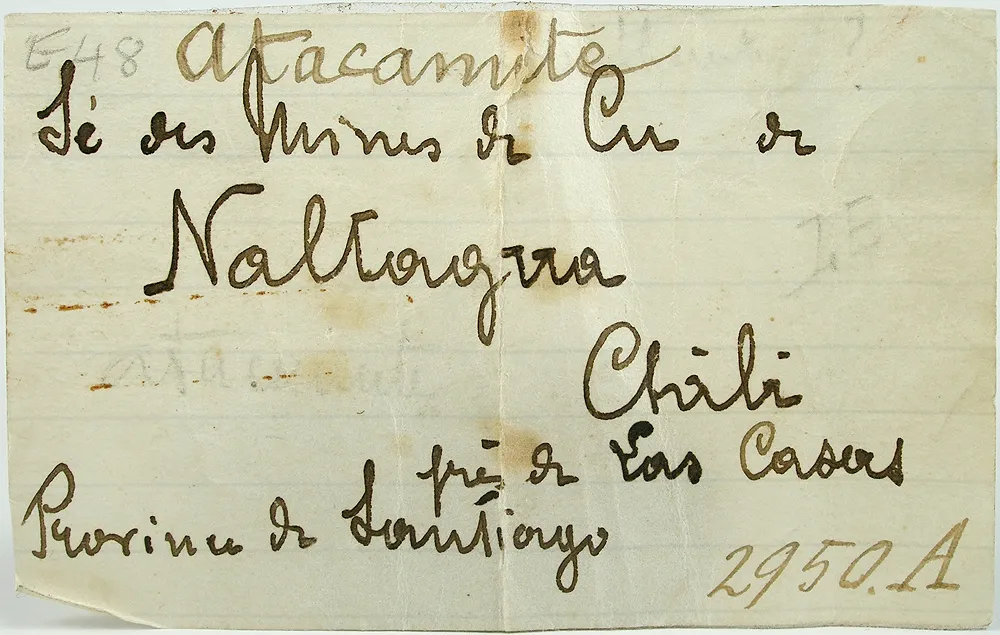 E48 Atacamite
Sé des Mines de Cu de
Naltagua
Chili
près de Las Casas
Province de Santiago
2950.A